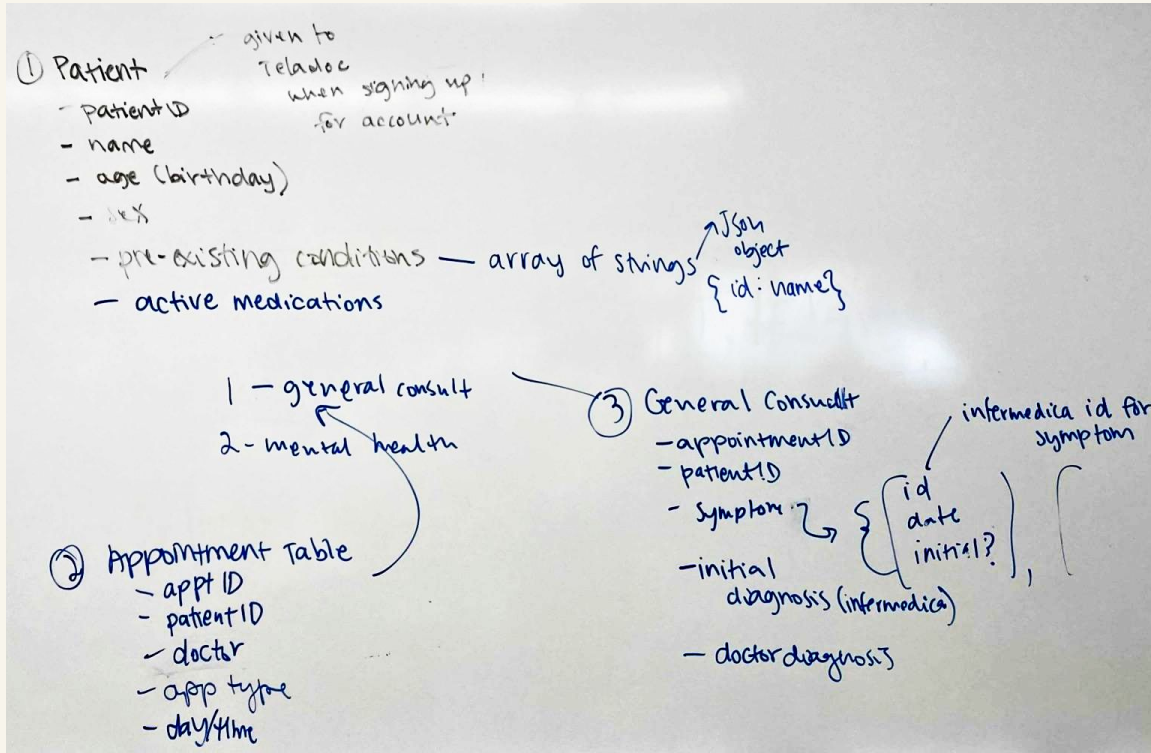 ① Patient
- given to
Teladoc
when signing up
for account
- patientID
- name
- age (birthday)
- sex
- pre-existing conditions — array of strings
Json
object
{id: name}
- active medications
1 - general consult
2 - mental health
② Appointment Table
- appt ID
- patientID
- doctor
- app type
- day/time
③ General Consult
- appointmentID
- patientID
- symptom
{ ( id
date
initial? ) , (
infermedica id for
symptom
- initial
diagnosis (infermedica)
- doctor diagnosis